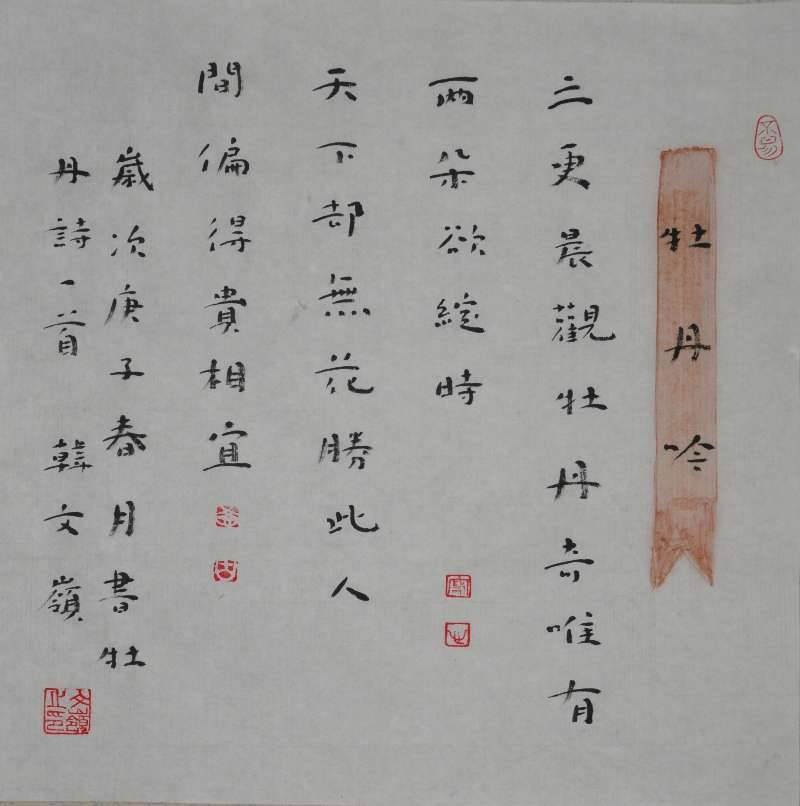 不易
牡丹吟
三更晨觀牡丹奇唯有
兩朵欲綻時
天下却無花勝此人
間偏得貴相宜
歲次庚子春月書牡
丹詩一首 韓文嶺
文嶺之印